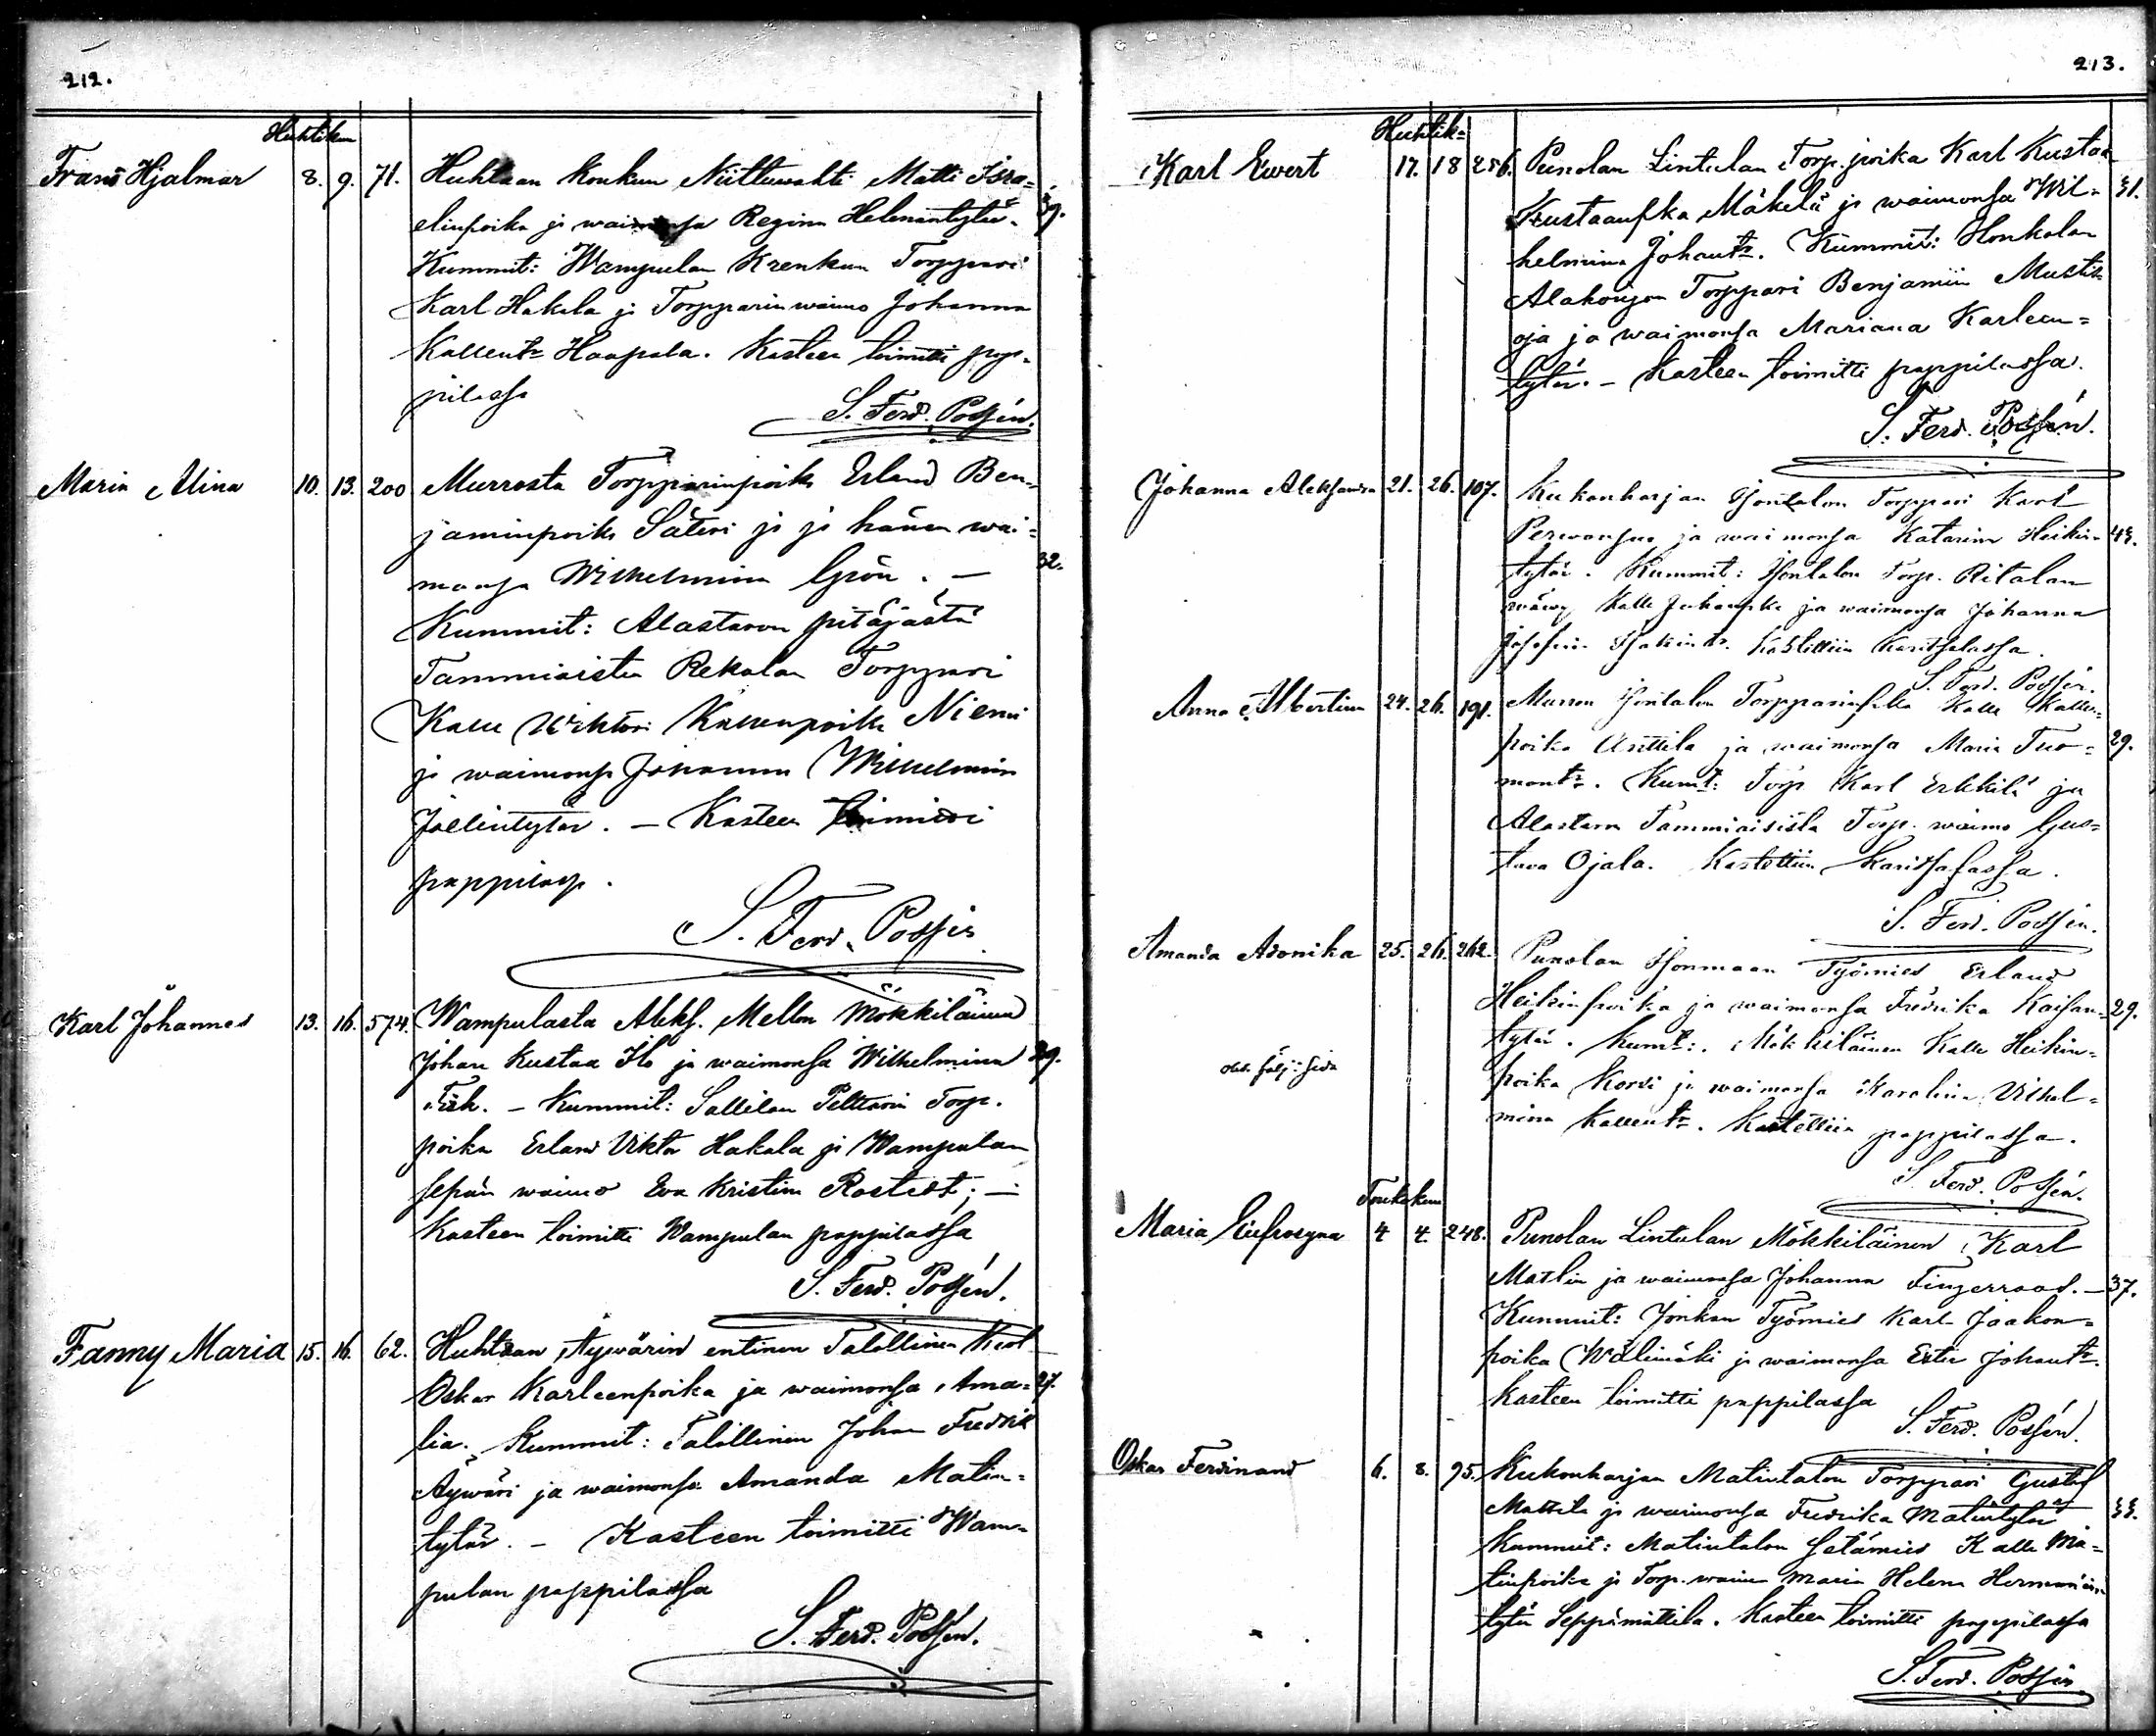 212.
Huhtikuu
Frans Hjalmar 8. 9. 71. Huhtaan Konkun Niittuwahti Matti Isra=
elinpoika ja waimonsa Regina Helenantytär. 39.
Kummit: Wampulan Krenkun Torppari
Karl Hakala ja Torpparin waimo Johanna
Kallentr Haapala. Kasteen toimitti pap=
pilassa
S. Ferd. Possén.
Maria Alina 10. 13. 200 Murrosta Torpparinpoika Erland Ben=
jaminpoika Säteri ja ja hänen wai=
monsa Wilhelmina Grön. — 32.
Kummit: Alastaron pitäjästä
Tammiaisten Rekolan Torppari
Kalle Wiktori Kallenpoika Niemi
ja waimonsa Johanna Wilhelmiina
Joelintytär. — Kasteen toimitti
pappilassa.
S. Ferd. Possén
Karl Johannes 13. 16. 574. Wampulasta Aleks. Mellon Mökkiläinen
Johan Kustaa Ilo ja waimonsa Wilhelmina 29.
Fisk. — Kummit: Sallilan Pelttarin Torp.
poika Erland Viktor Hakala ja Wampulan
sepän waimo Eva Kristina Rostedt; —
Kasteen toimitti Wampulan pappilassa
S. Ferd. Possén.
Fanny Maria 15. 16. 62. Huhtaan Äywärin entinen Talollinen Karl
Oskar Karleenpoika ja waimonsa Ama= 27.
lia. Kummit: Talollinen Johan Fredrik
Äywäri ja waimonsa Amanda Matin=
tytär. — Kasteen toimitti Wam=
pulan pappilassa
S. Ferd. Possén.
213.
Huhtik=
Karl Ewert 17. 18 256. Punolan Lintulan Torp. poika Karl Kustaa
Kustaanpka Mäkelä ja waimonsa Wil= 31.
helmina Johantr. Kummit: Honkolan
Alakoijon Torppari Benjamin Mustis
oja ja waimonsa Mariana Karleen=
tytär. — Kasteen toimitti pappilassa.
S. Ferd. Possén.
Johanna Aleksandra 21. 26. 107. Kukonharjan Isontalon Torppari Karl
ja waimonsa Katarina Heikin= 43.
tytär. Kummit: Isontalon Torp. Ritalan
wäwy Kalle Juhanpka ja waimonsa Johanna
Josefina Isakintr. Kastettiin Karitsalassa.
S. Ferd. Possén.
Anna Albertina 24. 26. 191. Murron Isontalon Torpparinpka Kalle Kallen=
poika Anttila ja waimonsa Maria Tuo= 29.
montr. Kumt: Torp. Karl Erkkilä ja
Alastaron Tammiaisista Torp. waimo Gus=
tava Ojala. Kastettiin Karitsalassa.
S. Ferd. Possén.
Amanda Adonika 25. 26. 262. Punolan Isonmaan Työmies Erland
Heikinpoika ja waimonsa Fredrika Kaisan= 29.
tytär. Kumt: Mökkiläinen Kalle Heikin=
poika Korvi ja waimonsa Karolina Vilhel=
mina Kallentr. Kastettiin pappilassa.
S. Ferd. Possén.
Toukokuu
Maria Eufrosyna 4 4. 248. Punolan Lintulan Mökkiläinen Karl
Matlin ja waimonsa Johanna Fingerroos. — 37.
Kummit: Jonkan Työmies Karl Jaakon=
poika Wälimäki ja waimonsa Ester Johantr.
Kasteen toimitti pappilassa
S. Ferd. Possén.
Oskar Ferdinand 6. 8. 95. Kukonharjan Matintalon Torppari Gustaf
Mattila ja waimonsa Fredrika Matintytär 33.
Kummit: Matintalon Setämies Kalle Ma=
tinpoika ja Torp. waimo Maria Helena Hermanin
tytär Seppämattila. Kasteen toimitti pappilassa
S. Ferd. Possén